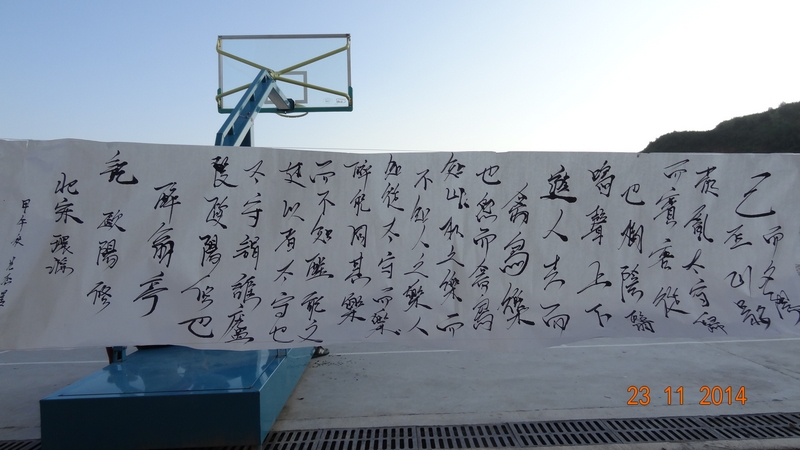 而夕陽
已
散亂太守歸
而賓客從
也樹陰翳
鳴聲上下
遊人去而
禽鳥樂
也然而禽鳥
知山林之樂而
不知人之樂人
知從太守而樂
醉能同其樂
而不知醒能
述以者太守也
太守謂誰廬
陵歐陽修也
醉翁亭
記歐陽修
北宋環滁
甲午
23 11 2014